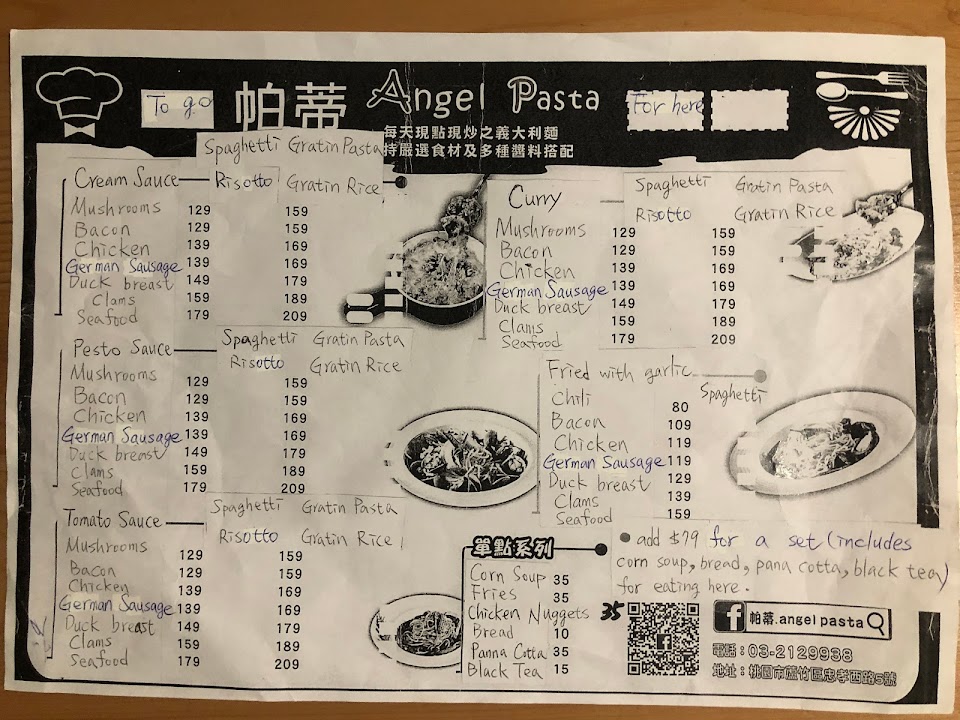 To go
帕蒂 Angel Pasta
For here
每天現點現炒之義大利麵
特嚴選食材及多種醬料搭配
Spaghetti Gratin Pasta
Cream Sauce Risotto Gratin Rice
Mushrooms 129 159
Bacon 129 159
Chicken 139 169
German Sausage 139 169
Duck breast 149 179
Clams 159 189
Seafood 179 209
Spaghetti Gratin Pasta
Pesto Sauce Risotto Gratin Rice
Mushrooms 129 159
Bacon 129 159
Chicken 139 169
German Sausage 139 169
Duck breast 149 179
Clams 159 189
Seafood 179 209
Spaghetti Gratin Pasta
Tomato Sauce Risotto Gratin Rice
Mushrooms 129 159
Bacon 129 159
Chicken 139 169
German Sausage 139 169
Duck breast 149 179
Clams 159 189
Seafood 179 209
Curry Spaghetti Gratin Pasta
Risotto Gratin Rice
Mushrooms 129 159
Bacon 129 159
Chicken 139 169
German Sausage 139 169
Duck breast 149 179
Clams 159 189
Seafood 179 209
Fried with garlic
Spaghetti
Chili 80
Bacon 109
Chicken 119
German Sausage 119
Duck breast 129
Clams 139
Seafood 159
單點系列
Corn Soup 35
Fries 35
Chicken Nuggets 35
Bread 10
Panna Cotta 35
Black Tea 15
● add $79 for a set (includes
corn soup, bread, pana cotta, black tea)
for eating here.
f 帕蒂.angel pasta
電話:03-2129938
地址:桃園市蘆竹區忠孝西路5號